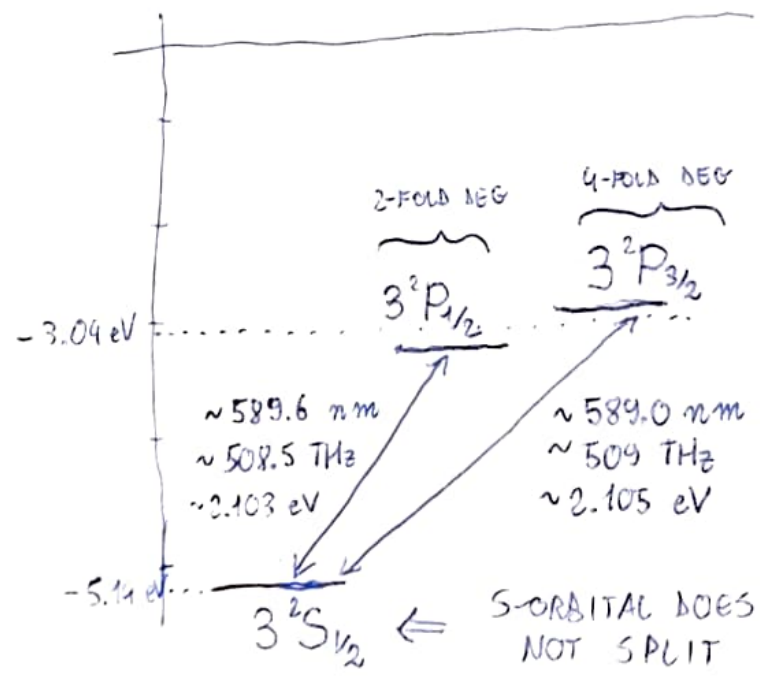 2-FOLD DEG
4-FOLD DEG
3²P₁/₂
3²P₃/₂
-3.04 eV
~589.6 nm
~508.5 THz
~2.103 eV
~589.0 nm
~509 THz
~2.105 eV
-5.14 eV
3²S₁/₂
⇐ S-ORBITAL DOES
NOT SPLIT